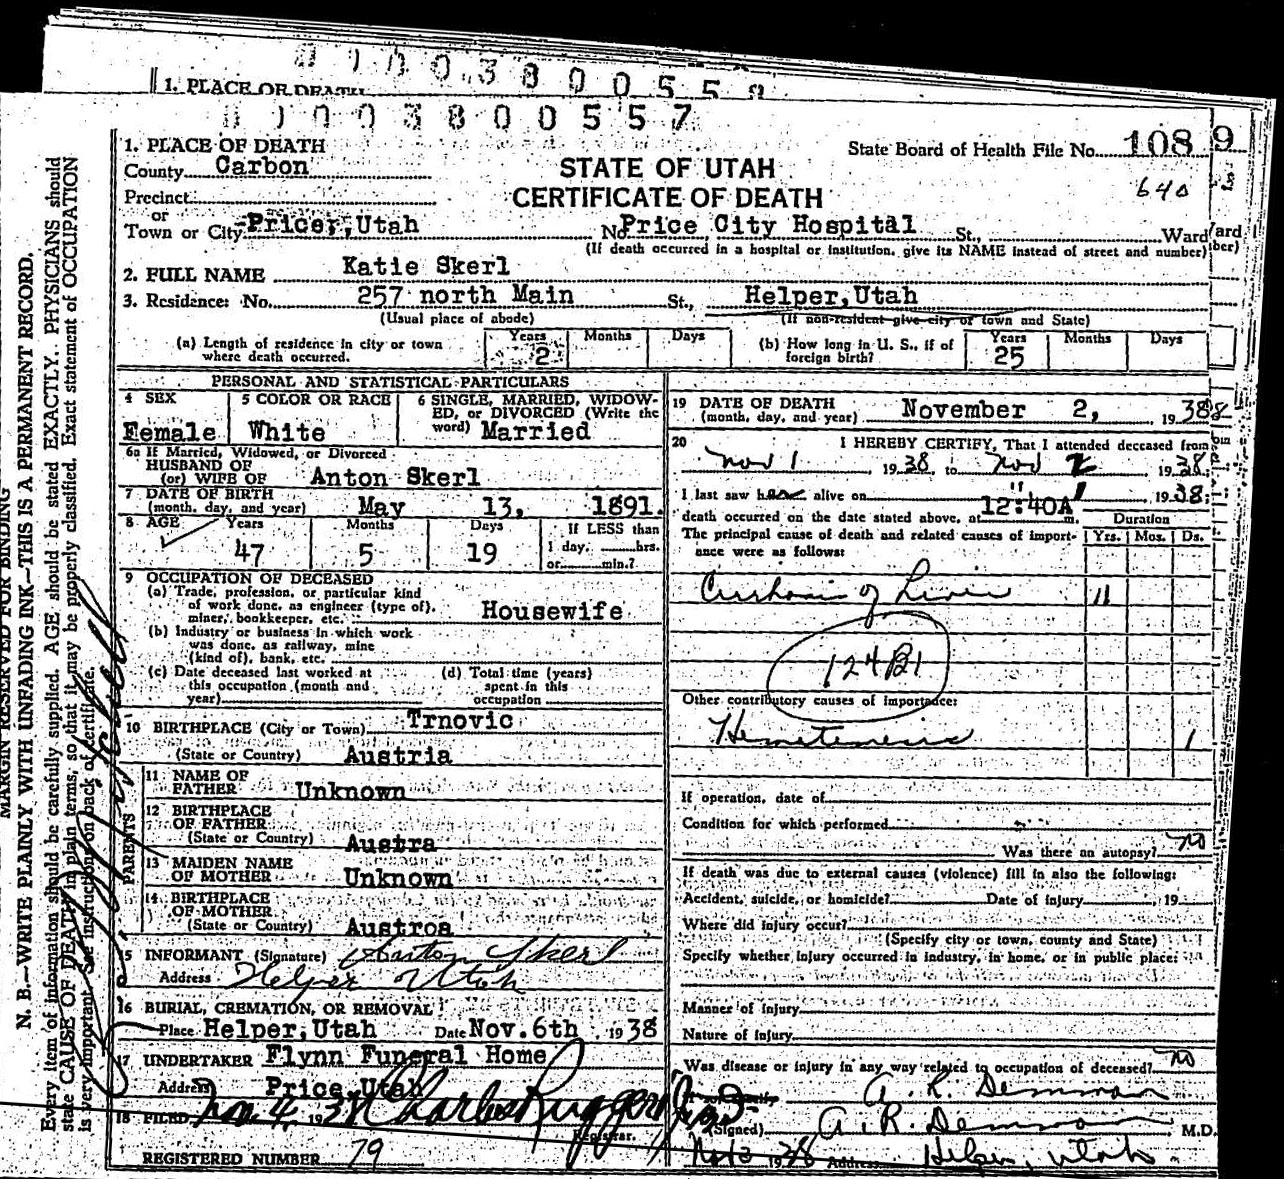 0 0 0 3 8 0 0 5 5 8
1. PLACE OF DEATH
0 0 0 3 8 0 0 5 5 7
1. PLACE OF DEATH
State Board of Health File No. 108 9
County Carbon
STATE OF UTAH
640
Precinct
CERTIFICATE OF DEATH
or
Town or City Pricer, Utah No. Price City Hospital St., Ward
(If death occurred in a hospital or institution, give its NAME instead of street and number)
2. FULL NAME Katie Skerl
3. Residence: No. 257 north Main St., Helper, Utah
(Usual place of abode) (If non-resident give city or town and State)
(a) Length of residence in city or town where death occurred. Years 2 Months Days
(b) How long in U. S., if of foreign birth? Years 25 Months Days
PERSONAL AND STATISTICAL PARTICULARS
4 SEX Female
5 COLOR OR RACE White
6 SINGLE, MARRIED, WIDOWED, or DIVORCED (Write the word) Married
6a If Married, Widowed, or Divorced
HUSBAND OF
(or) WIFE OF Anton Skerl
7 DATE OF BIRTH
(month, day, and year) May 13, 1891.
8 AGE Years 47 Months 5 Days 19
If LESS than
1 day, hrs.
or min.?
9 OCCUPATION OF DECEASED
(a) Trade, profession, or particular kind
of work done, as engineer (type of),
miner, bookkeeper, etc. Housewife
(b) Industry or business in which work
was done, as railway, mine
(kind of), bank, etc.
(c) Date deceased last worked at
this occupation (month and
year)
(d) Total time (years)
spent in this
occupation
10 BIRTHPLACE (City or Town) Trnovic
(State or Country) Austria
PARENTS
11 NAME OF
FATHER Unknown
12 BIRTHPLACE
OF FATHER
(State or Country) Austra
13 MAIDEN NAME
OF MOTHER Unknown
14 BIRTHPLACE
OF MOTHER
(State or Country) Austroa
15 INFORMANT (Signature) Anton Skerl
Address Helper Utah
16 BURIAL, CREMATION, OR REMOVAL
Place Helper, Utah Date Nov. 6th 1938
17 UNDERTAKER Flynn Funeral Home
Address Price, Utah
18 FILED Nov. 4, 19 38 Charles Ruggeri
Registrar.
REGISTERED NUMBER 79
19 DATE OF DEATH
(month, day, and year) November 2, 1938
20 I HEREBY CERTIFY, That I attended deceased from
Nov 1 1938, to Nov 2 1938,
I last saw h alive on 1938;
death occurred on the date stated above, at 12:40A m.
Duration
The principal cause of death and related causes of importance were as follows:
Yrs. Mos. Ds.
Cirrhosis of Liver 11
124B1
Other contributory causes of importance:
Hemetemesis 1
If operation, date of
Condition for which performed
Was there an autopsy? No
If death was due to external causes (violence) fill in also the following:
Accident, suicide, or homicide? Date of injury 19
Where did injury occur?
(Specify city or town, county and State)
Specify whether injury occurred in industry, in home, or in public place:
Manner of injury
Nature of injury
Was disease or injury in any way related to occupation of deceased? No
A. R. Demman
(Signed) A. R. Demman M.D.
Nov 3 1938 Address Helper, Utah
MARGIN RESERVED FOR BINDING
N. B.—WRITE PLAINLY WITH UNFADING INK—THIS IS A PERMANENT RECORD.
Every item of information should be carefully supplied. AGE should be stated EXACTLY. PHYSICIANS should
state CAUSE OF DEATH in plain terms, so that it may be properly classified. Exact statement of OCCUPATION
is very important. See instructions on back of certificate.